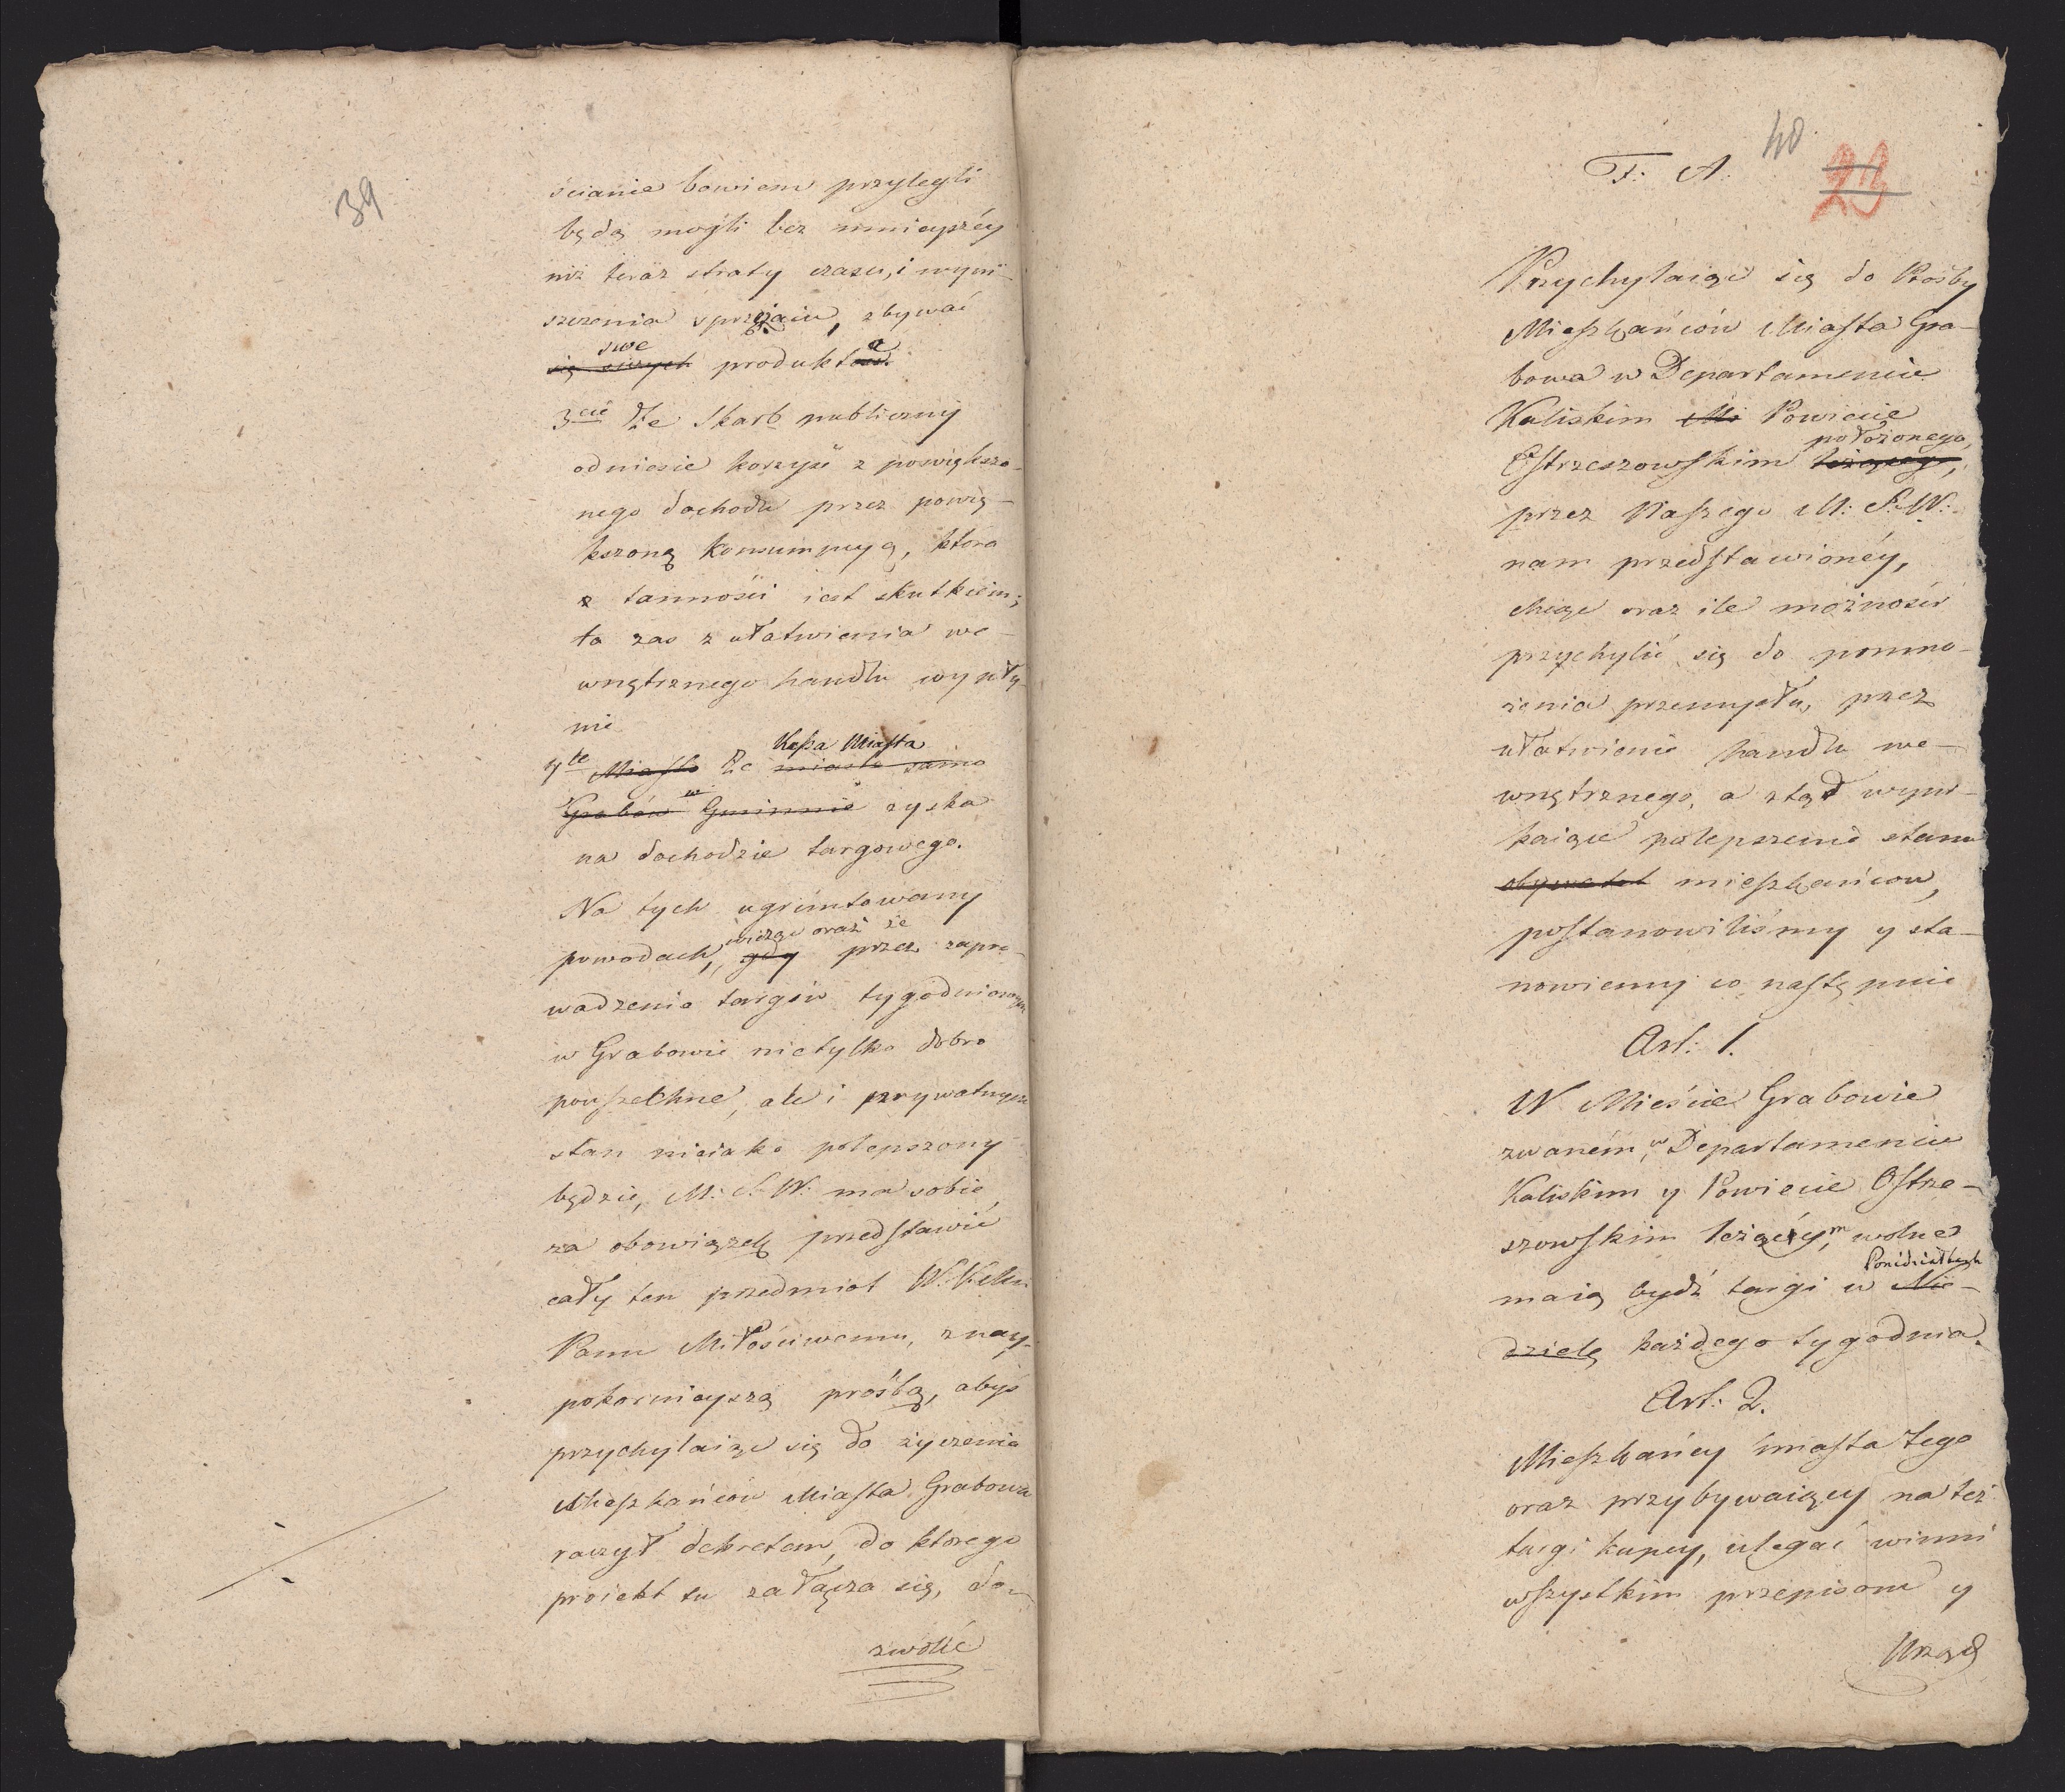 39
ścianie bowiem przylegli
będą mogli bez mnieyszéy
niż teraz straty czasu, i wyni-
szczenia sprzężaiu, zbywać
swe a
się swych produktow.
3cie Że Skarb publiczny
odniesie korzyść z powiększo-
nego dochodu przez powię-
kszoną konsumpcyą, która
z tanności iest skutkiem;
ta zas z ułatwienia we-
wnętrznego handlu wypły-
nie
Kassa Miasta
4te Miasto Że miasto samo
Grabów w Gminnie zyska
na dochodzie targowego.
Na tych ugruntowany
widząc oraz że
powodach, gdy przez zapro-
wadzenie targów tygodniowych
w Grabowie nietylko dobro
powszechne, ale i prywatnych
stan nieiako polepszony
będzie, M: S. W: ma sobie
za obowiązek przedstawić
cały ten przedmiot W. K.
Panu Miłościwemu, z nay-
pokornieyszą prośbą, abyś
przychylaiąc się do życzenia
Mieszkańców Miasta Grabowa
raczył dekretem, do którego
proiekt tu załącza się, do-
zwolić
40
F: A. 23
Przychylaiąc się do Prośby
Mieszkańców Miasta Gra-
bowa w Departamencie
Kaliskim Mi Powiecie
położonego,
Ostrzeszowskim leżącego,
przez Naszego M: S. W:
nam przedstawionéy,
chcąc oraz ile możności
przychylić się do pomno-
żenia przemysłu, przez
ułatwienie handlu we-
wnętrznego, a ztąd wyni-
kaiące polepszenie stanu
obywatel mieszkańcow,
postanowiliśmy y sta-
nowiemy co następuie
Art: 1.
W Mieście Grabowie
zwaném, w Departamencie
Kaliskim y Powiecie Ostrze-
szowskim leżącym, wolne
Poniedziałkach
maią bydź targi w Nie-
dzielę każdego tygodnia.
Art: 2.
Mieszkańcy miasta tego
oraz przybywaiący na też
targi kupcy, ulegać winni
wszystkim przepisom y
Urząd